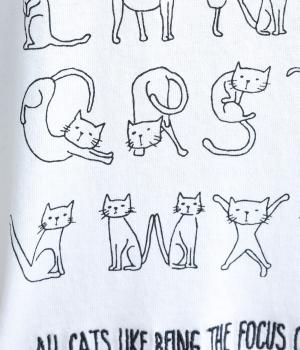 Q R S
V W X
ALL CATS LIKE BEING THE FOCUS